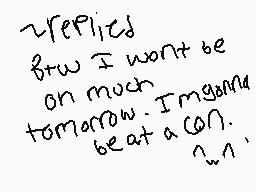 ~replies
btw I wont be
on much
tomorrow. I'm gonna
be at a con.
^w^'